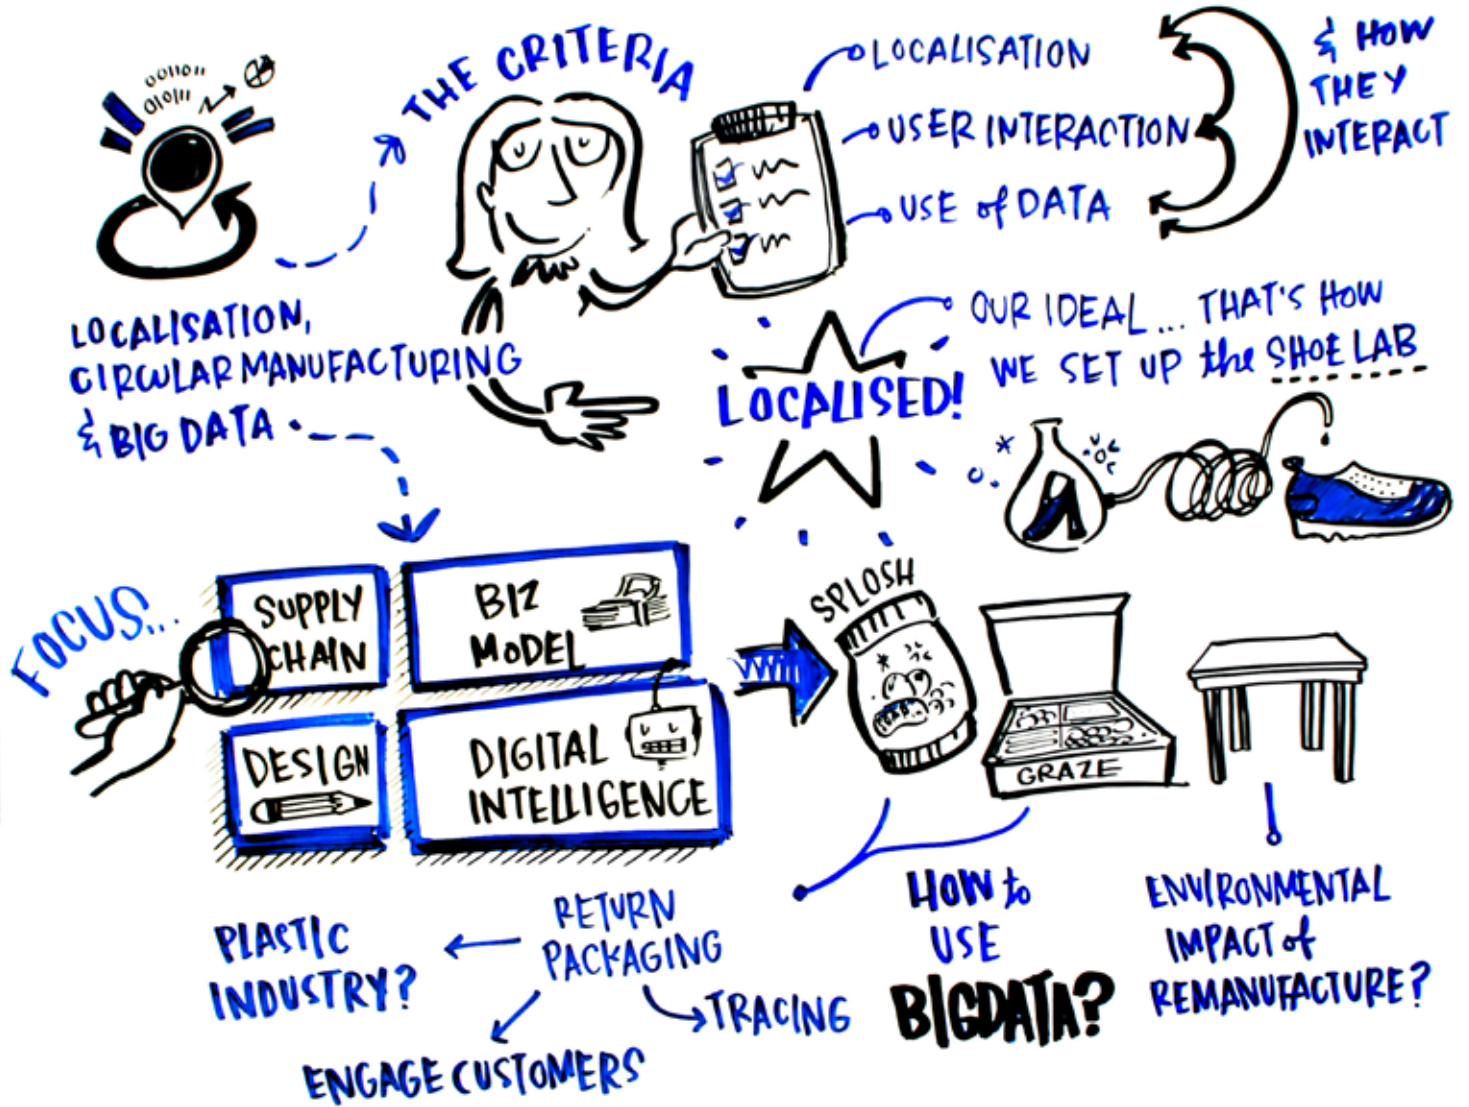 00110 11
010 11
THE CRITERIA
LOCALISATION
USER INTERACTION
USE of DATA
& HOW
THEY
INTERACT
LOCALISATION,
CIRCULAR MANUFACTURING
& BIG DATA
LOCALISED!
OUR IDEAL... THAT'S HOW
WE SET UP the SHOE LAB
FOCUS...
SUPPLY
CHAIN
BIZ
MODEL
DESIGN
DIGITAL
INTELLIGENCE
SPLOSH
GRAZE
RETURN
PACKAGING
PLASTIC
INDUSTRY?
TRACING
ENGAGE CUSTOMERS
HOW to
USE
BIGDATA?
ENVIRONMENTAL
IMPACT of
REMANUFACTURE?